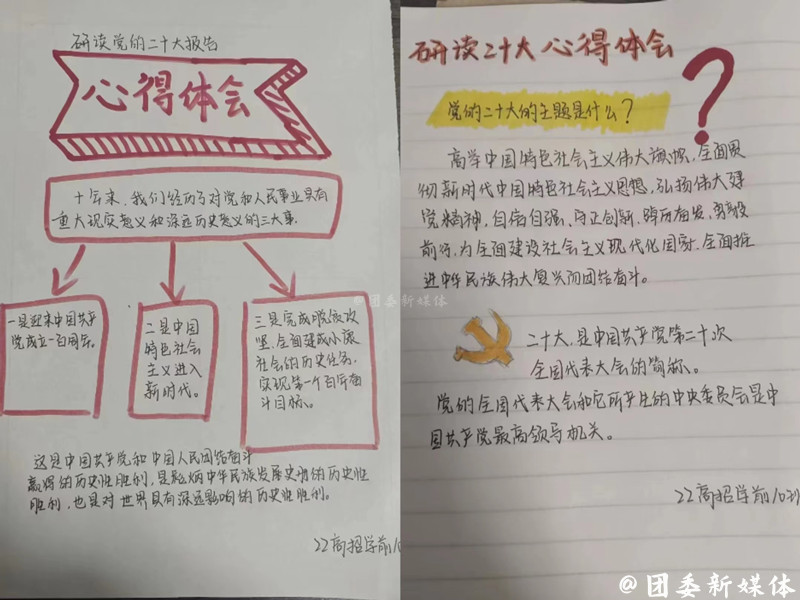 研读党的二十大报告
心得体会
十年来,我们经历了对党和人民事业具有
重大现实意义和深远历史意义的三大事.
一是迎来中国共产
党成立一百周年。
二是中国
特色社会
主义进入
新时代。
三是完成脱贫攻
坚,全面建成小康
社会的历史任务,
实现第一个百年奋
斗目标。
这是中国共产党和中国人民团结奋斗
赢得的历史性胜利,是彪炳中华民族发展史册的历史性
胜利,也是对世界具有深远影响的历史性胜利。
22高招学前10
研读二十大心得体会
党的二十大的主题是什么?
?
高举中国特色社会主义伟大旗帜,全面贯
彻新时代中国特色社会主义思想,弘扬伟大建
党精神,自信自强、守正创新,踔厉奋发、勇毅
前行,为全面建设社会主义现代化国家、全面推
进中华民族伟大复兴而团结奋斗。
二十大,是中国共产党第二十次
全国代表大会的简称。
党的全国代表大会和它所产生的中央委员会是中
国共产党最高领导机关。
22高招学前10班
@团委新媒体
@团委新媒体